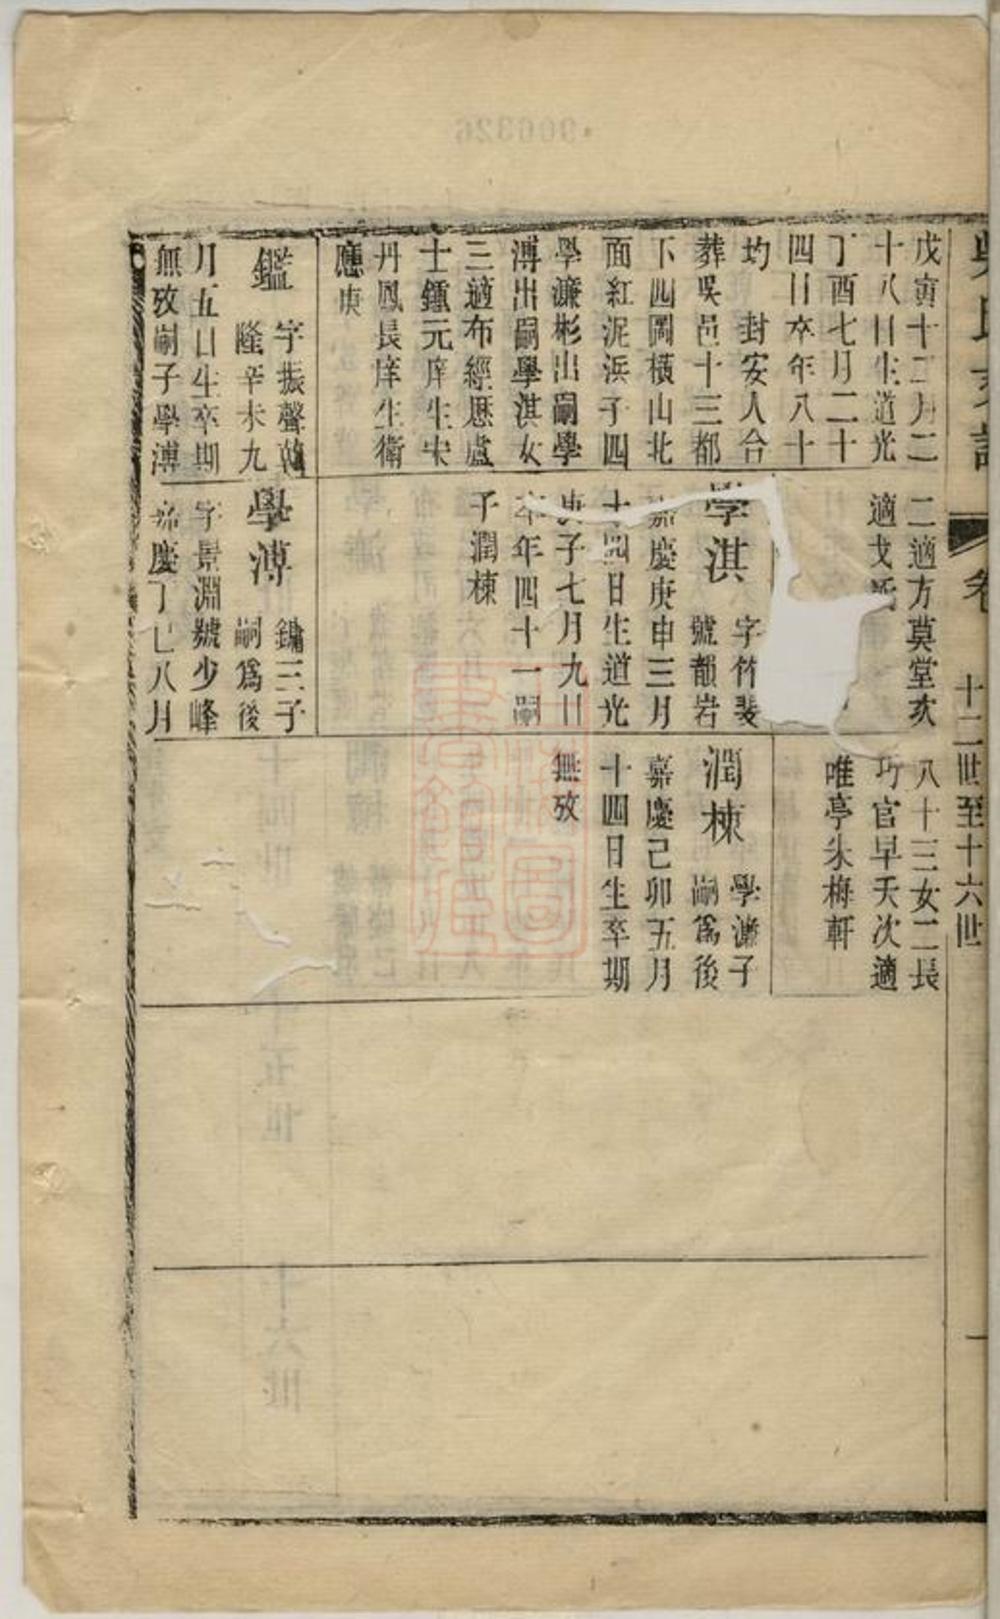 吳氏支譜
卷
十二世至十六世
一
戊寅十二月二
十八日生道光
丁酉七月二十
四日卒年八十
均 封安人合
葬吳邑十三都
下四圖橫山北
面紅泥浜子四
學濂彬出嗣學
溥出嗣學淇女
三適布經歷盧
士鍾元庠生宋
丹鳳長庠生衛
應庚
鑑
字振聲乾
隆辛未九
月五日生卒期
無攷嗣子學溥
二適方莫堂次
適戈
學淇
字竹裴
號韻岩
嘉慶庚申三月
十四日生道光
庚子七月九日
卒年四十一嗣
子潤棟
學溥
鏞三子
嗣為後
字景淵號少峰
嘉慶丁巳八月
八十三女二長
巧官早夭次適
唯亭朱梅軒
潤棟
學濂子
嗣為後
嘉慶己卯五月
十四日生卒期
無攷